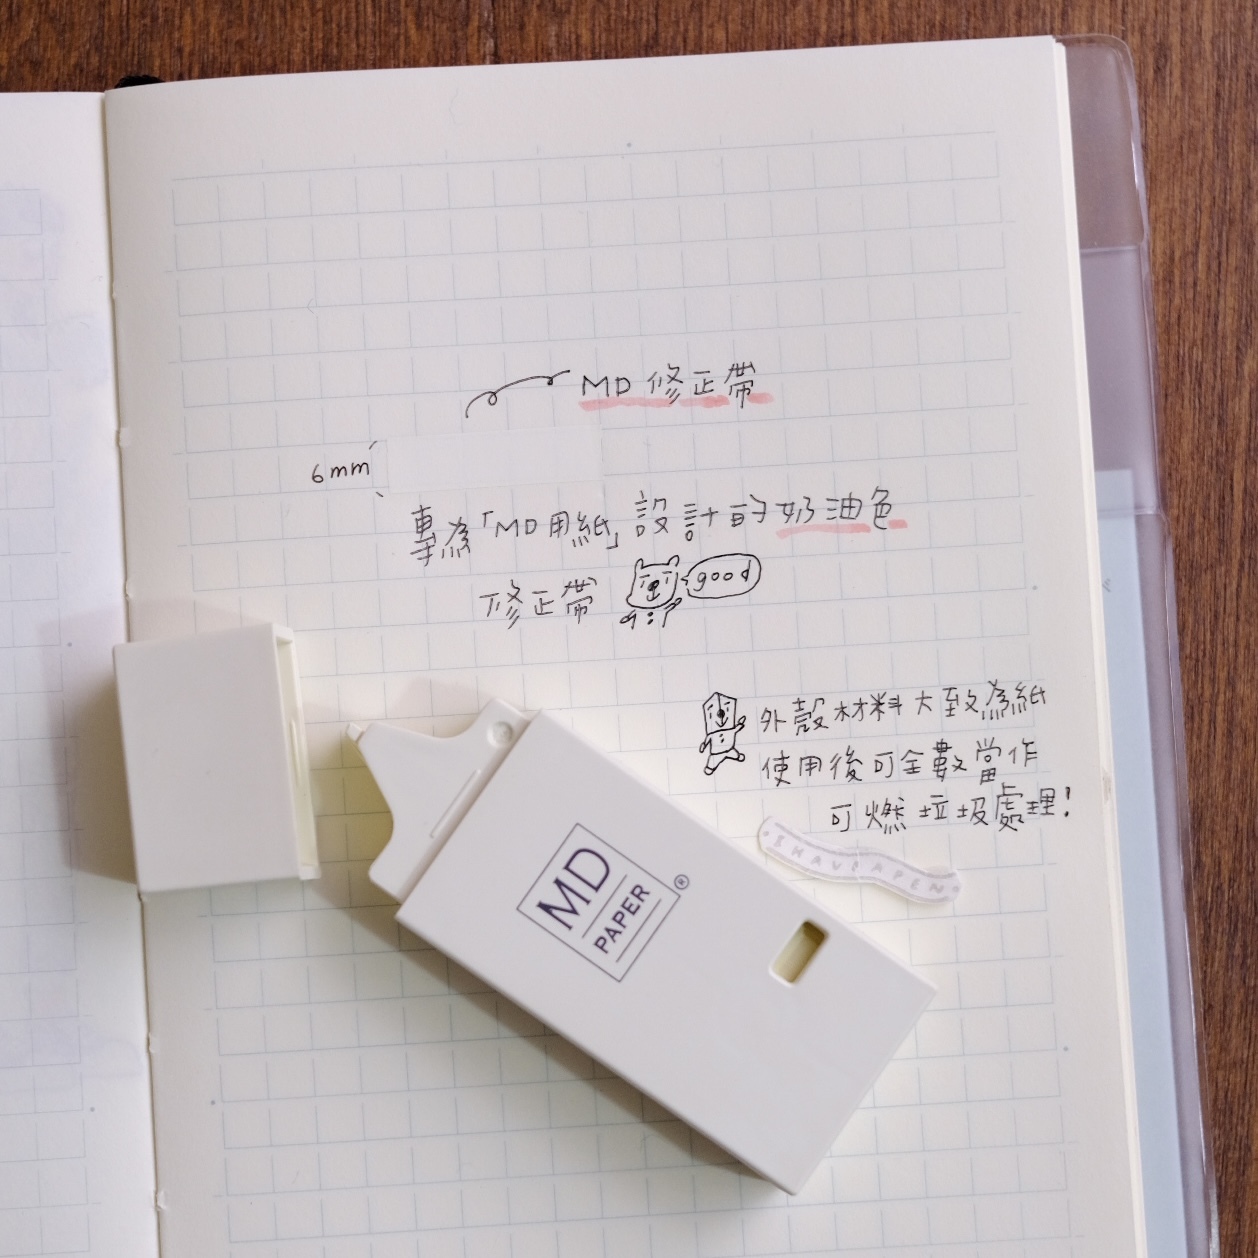 MD 修正帶
6mm
專為「MD用紙」設計的奶油色
修正帶
good
外殼材料大致為紙
使用後可全數當作
可燃垃圾處理!
MD
PAPER®